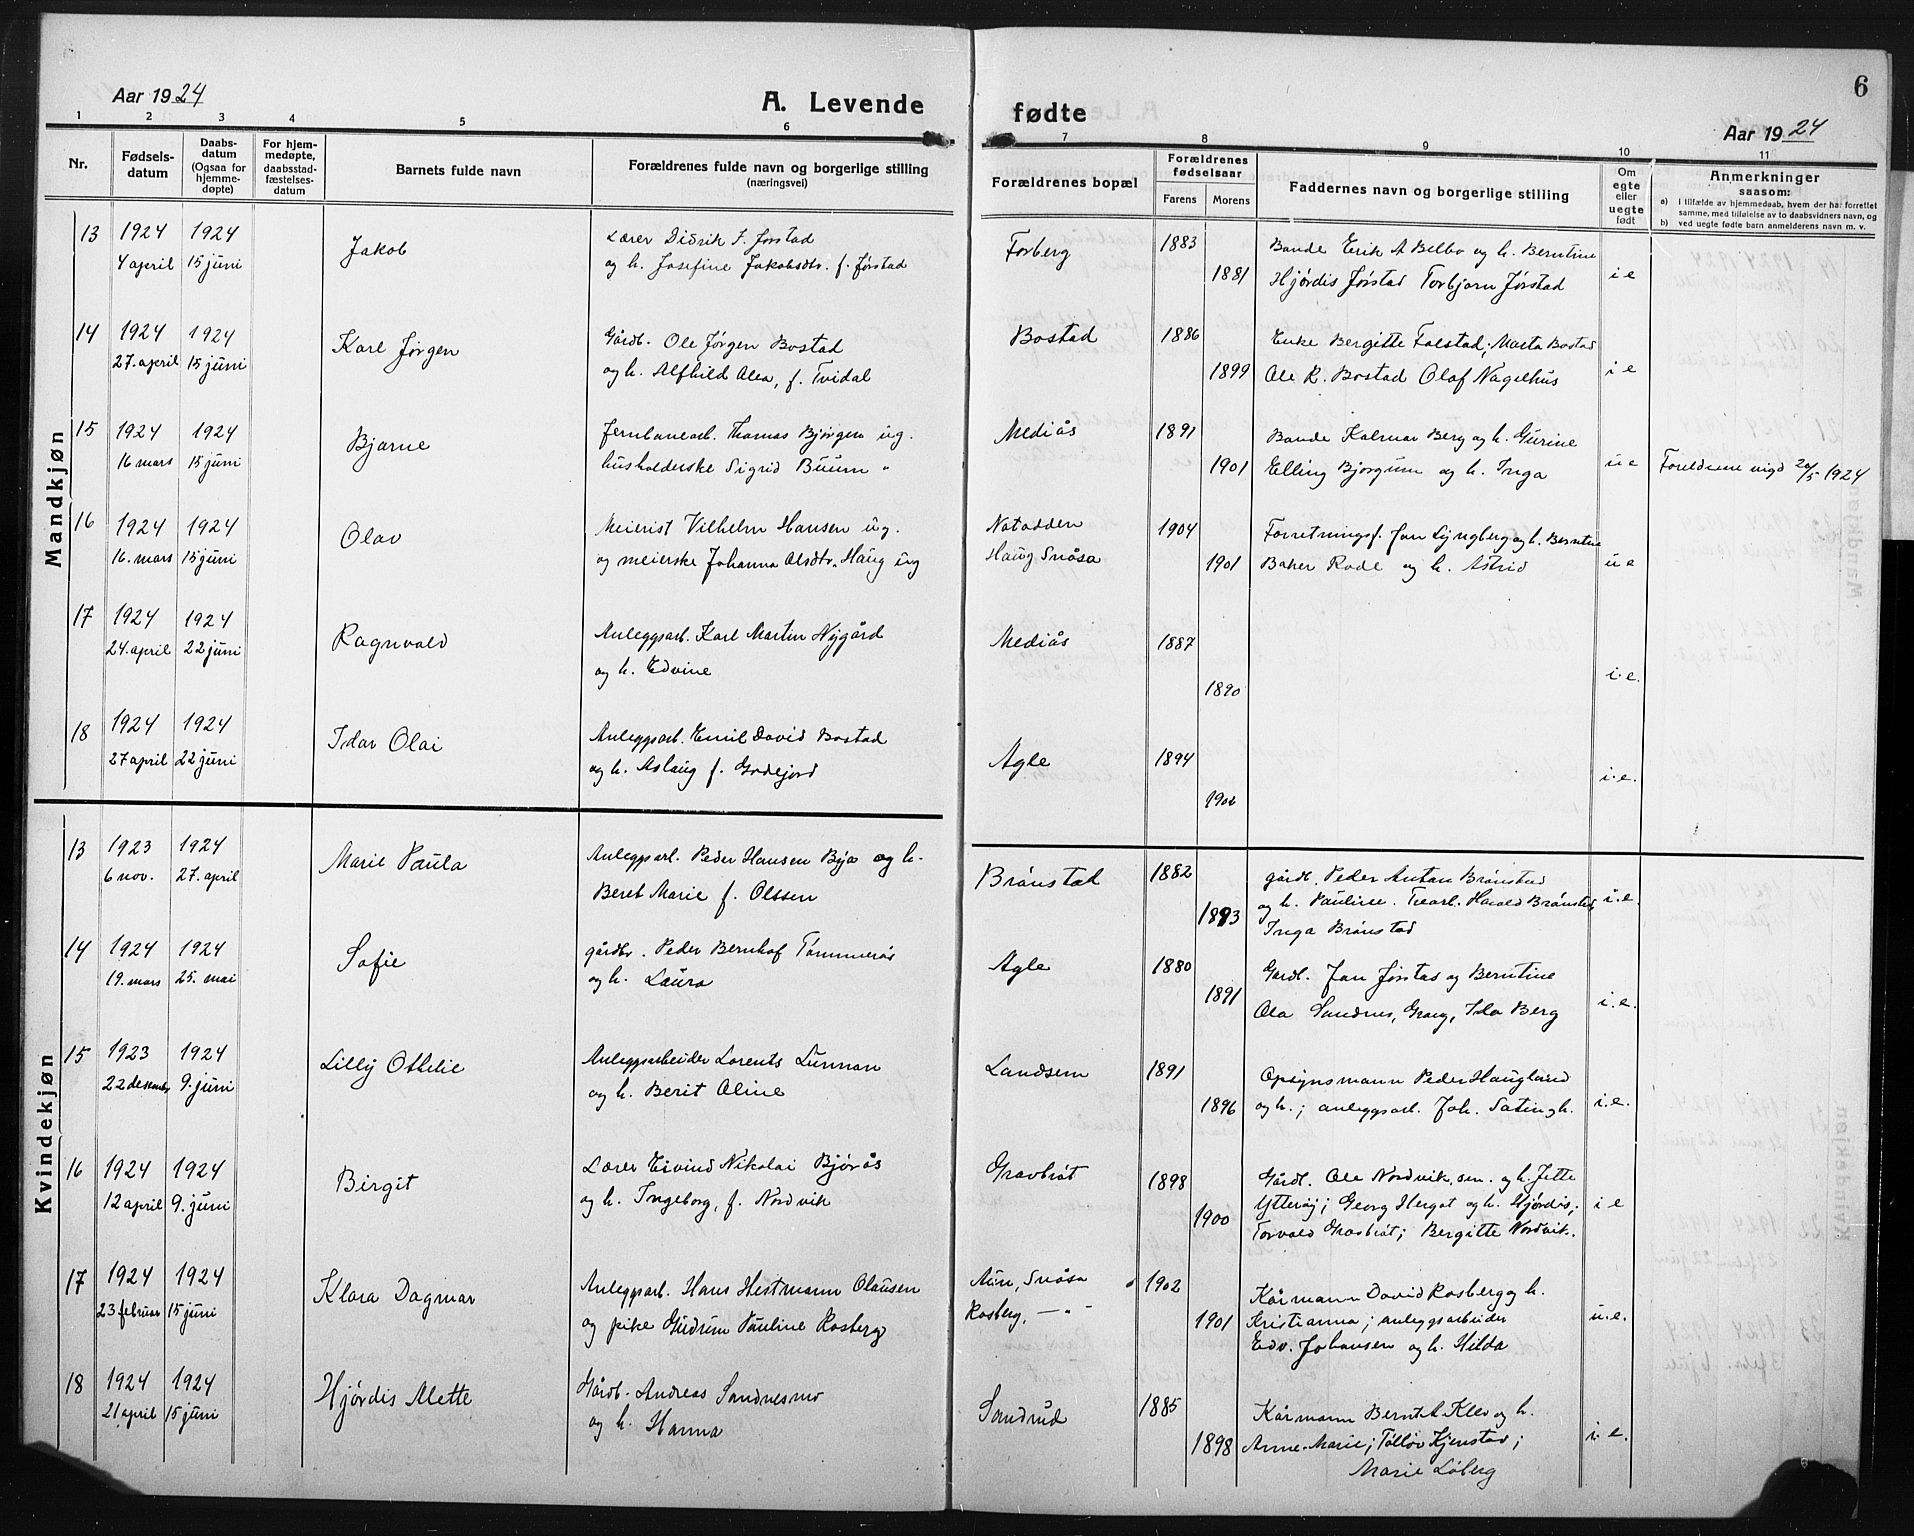 Aar 1924
A. Levende
1 2 3 4 5 6
Nr.
Fødsels-
datum
Daabs-
datum
(Ogsaa for
hjemme-
døpte)
For hjem-
medøpte,
daabsstad-
fæstelses-
datum
Barnets fulde navn
Forældrenes fulde navn og borgerlige stilling
(næringsvei)
Mandkjøn
13 1924 1924 Lærer Didrik J. Jørstad
4 april 15 juni Jakob og h. Josefine Jakobsdtr. f. Jørstad
14 1924 1924 Gårdb. Ole Jørgen Bostad
27. april 15 juni Karl Jørgen og h. Alfhild Alea, f. Tvidal
15 1924 1924 Jernbanearb. Thomas Bjørgen ug.
16 mars 15 juni Bjarne husholderske Sigrid Buum "
16 1924 1924 Meierist Vilhelm Hansen ug.
16. mars 15 juni Olav og meierske Johanna Olsdtr. Haug ug
17 1924 1924 Anleggsarb. Karl Martin Nygård
24. april 22 juni Ragnvald og h. Edvine
18 1924 1924 Anleggsarb. Emil David Bostad
27 april 22 juni Idar Olai og h. Aslaug f. Godejord
Kvindekjøn
13 1923 1924 Anleggsarb. Peder Hansen Bye og h.
6 nov. 27. april Marie Paula Beret Marie f. Olssen
14 1924 1924 gårdbr. Peder Bernhof Tømmerås
19. mars 25. mai Sofie og h. Laura
15 1923 1924 Anleggsarbeider Lorents Lunnan
22 desember 9. juni Lilly Othelie og h. Berit Oline
16 1924 1924 Lærer Eivind Nikolai Bjørås
12 april 9. juni Birgit og h. Ingeborg, f. Nordvik
17 1924 1924 Anleggsarb. Hans Hestmann Olaussen
23 februar 15 juni Klara Dagmar og pike Gudrun Pauline Rosberg
18 1924 1924 Gårdb. Andreas Sandnesmo
21 april 15 juni Hjørdis Alette og h. Hanna
6
fødte
Aar 1924
7 8 9 10 11
Forældrenes bopæl
Forældrenes
fødselsaar
Farens Morens
Faddernes navn og borgerlige stilling
Om
egte
eller
uegte
født
Anmerkninger
saasom:
a) i tilfælde av hjemmedaab, hvem der har forrettet
samme, med tilføielse av to daabsvidners navn, og
b) ved uegte fødte barn anmelderens navn m. v.
Forberg 1883 Bonde Erik A Belbo og h. Berntine
1881 Hjørdis Jørstad Torbjørn Jørstad i e
Bostad 1886 Enke Bergitte Falstad; Marta Bostad
1899 Ole R. Bostad Olaf Nagelhus i e
Mediås 1891 Bonde Kalmar Berg og h. Gurine
1901 Elling Bjørgum og h. Inga u e Foreldrene vigd 20/5 1924
Notodden 1904 Forretningsf. Jon Lyngberg og h. Berntine
Haug Snåsa 1901 Baker Rode og h. Astrid u e
Mediås 1887
1890 i.e.
Agle 1894
i.e.
Brønstad 1882 gårdb. Peder Anton Brønstad
1893 og h. Pauline. Harald Brønstad, i.e.
Inga Brønstad
Agle 1880 Gårdb. Jon Jørstad og Berntine
1891 Ola Sandnes, Ida Berg i.e.
Landsem 1891 Opsynsmann Peder Haugland
1896 og h.; anleggsarb. Joh. i.e.
Gravbrøt 1898 Gårdb. Ole Nordvik, sen. og h. Jette
1900 Ytterøy; Georg Hergot og h. Hjørdis; i e
Torvald Gravbrøt; Bergitte Nordvik.
Aun, Snåsa 1902 Kårmann David Rosberg og h.
Rosberg, — " - 1901 Kristianna; anleggsarbeider u.e.
Edv. Johansen og h. Hilda
Sandrud 1885 Kårmann Bernt A Klev og h.
1898 Anne-Marie; Tollov Kjenstad; i. e.
Marie Løberg